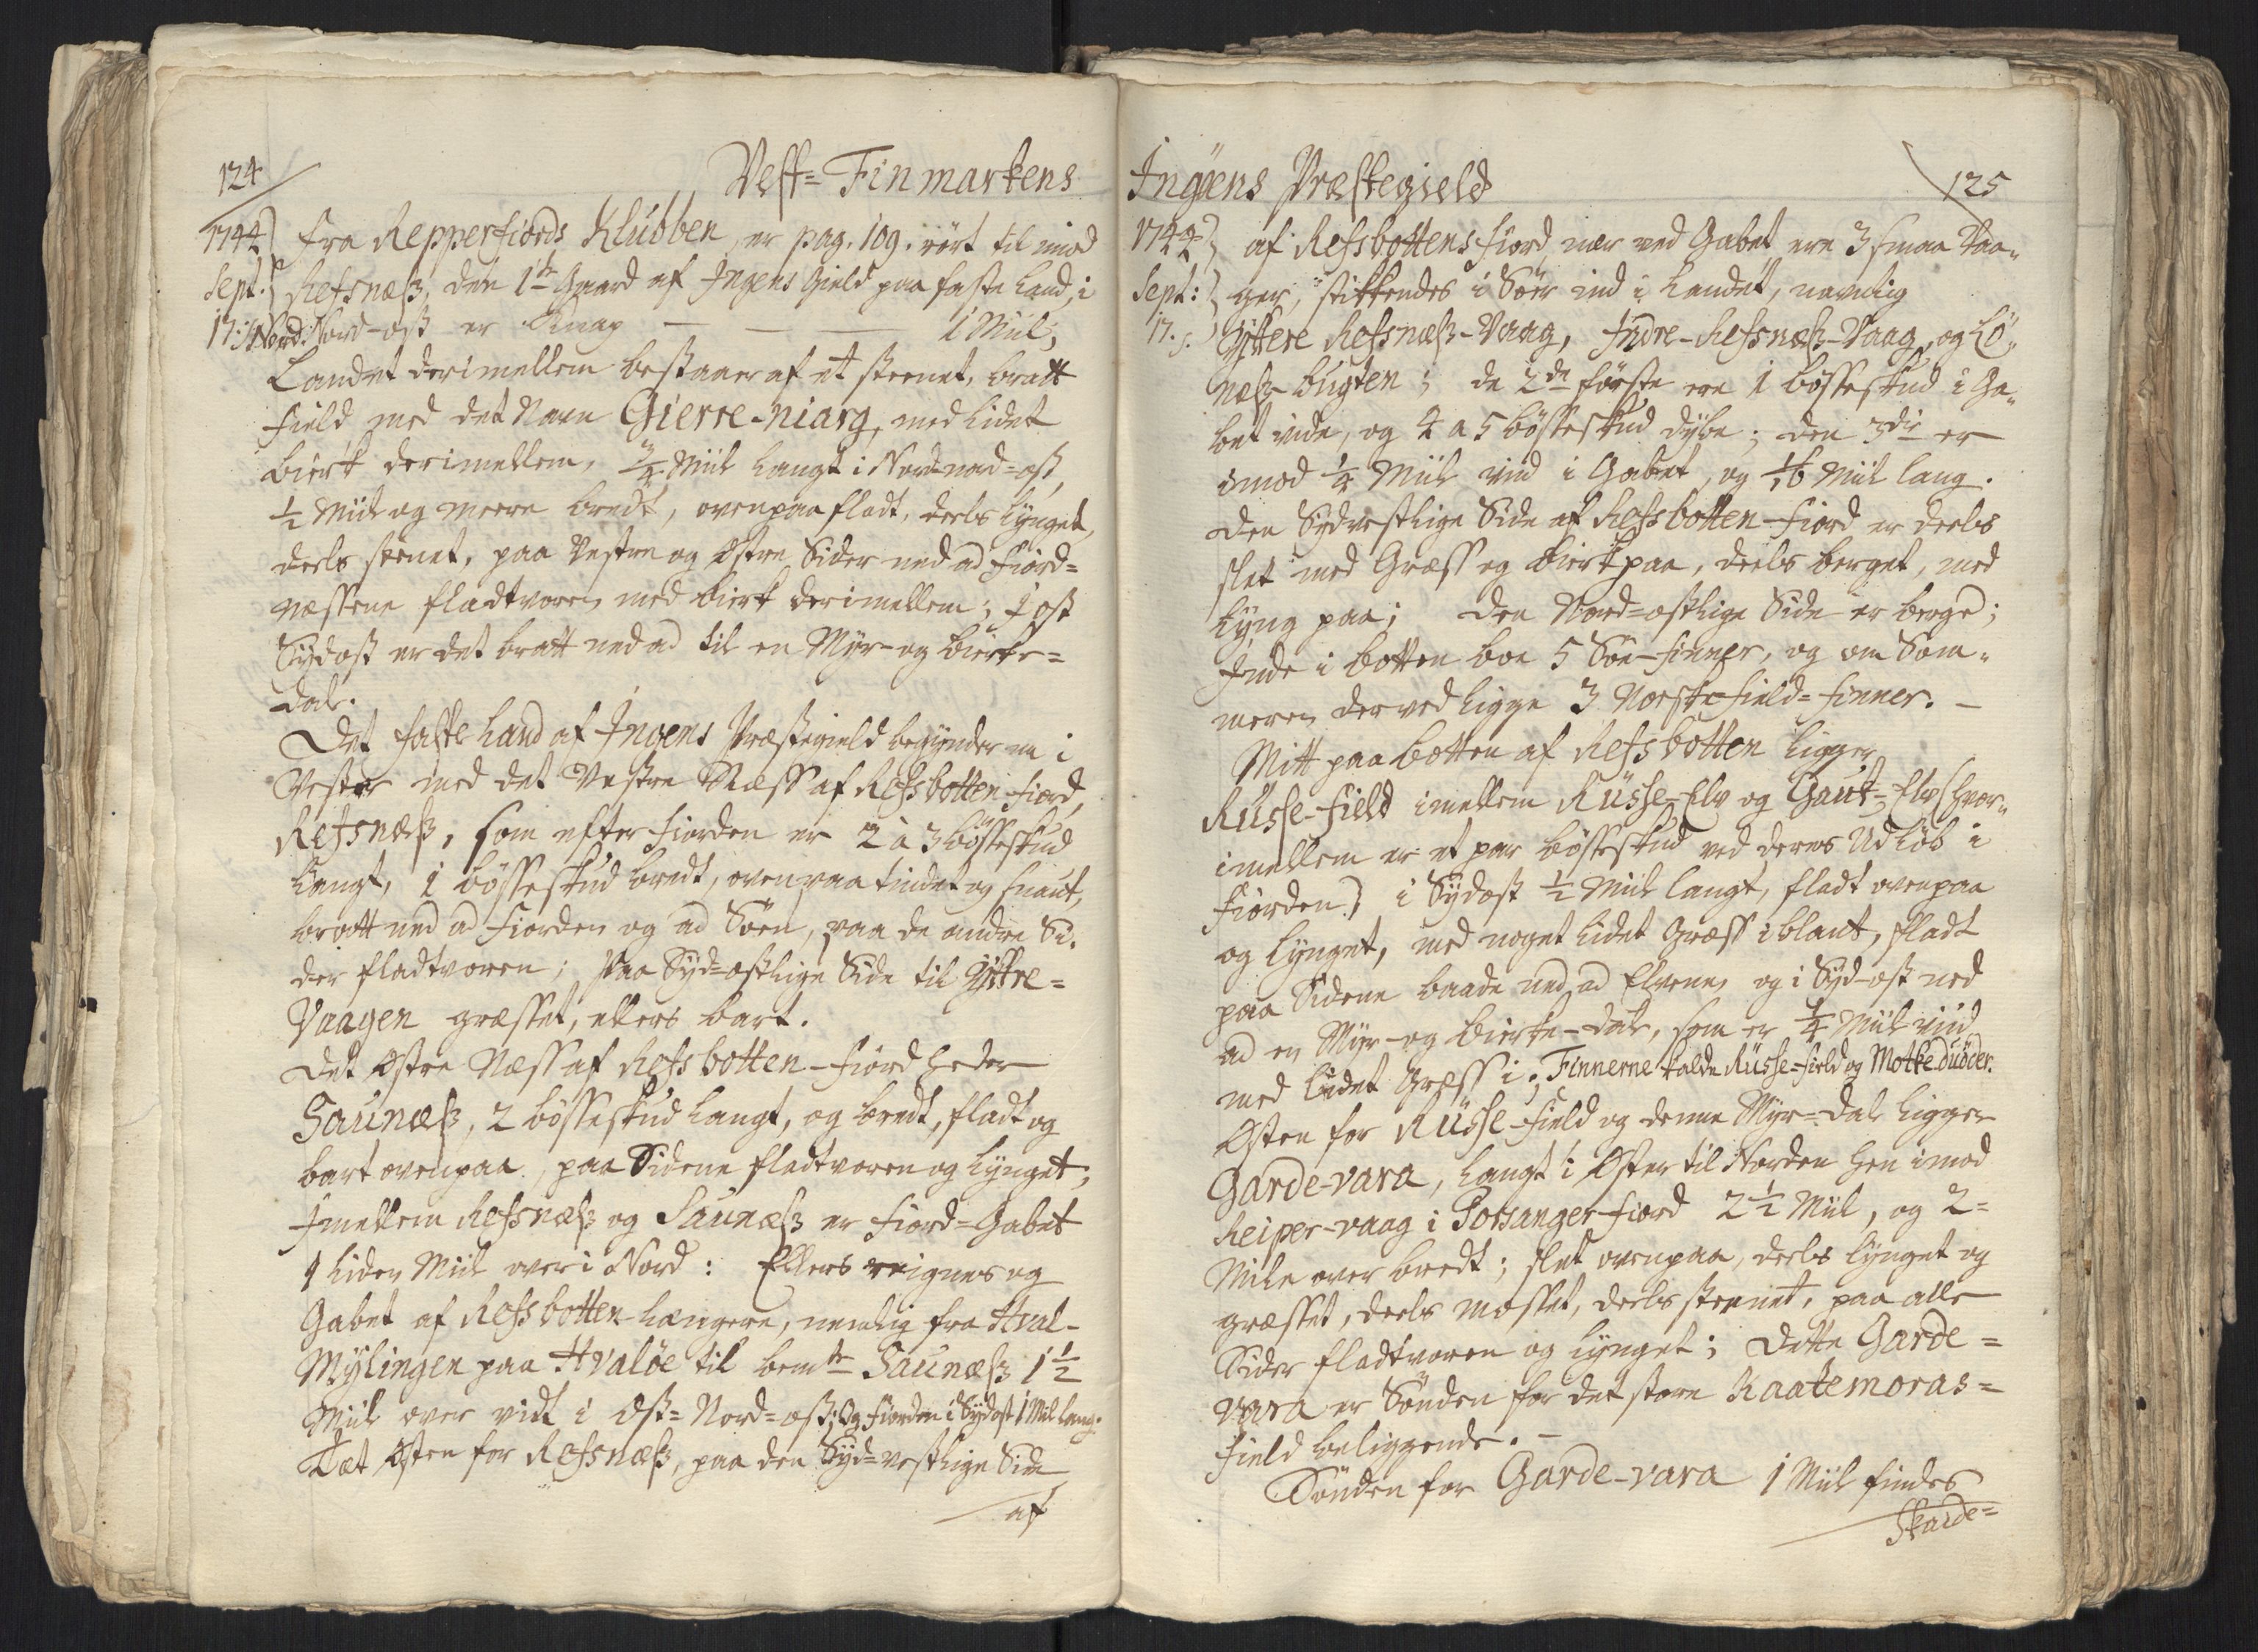 124
Vest=Finmarkens
1744
Sept:
17:
Fra Repperfiords Klubben, er pag. 109. rört til imod
Refsnæss, den 1te Gaard af Ingens Gield paa faste Land, i
Nord-ost er knap — — — 1 Miil;
Landet derimellem bestaaer af et steenet, bratt
Field med det Navn Gierre-niarg, med lidet
Birk derimellem, 3/4 Miil langt i Nordnord=ost,
1/2 Miil og meere bredt, ovenpaa fladt, deels lynget,
deels steenet, paa Vestre og Ostre Sider ned ad Fiord=
Næssene fladtvoren med birk derimellem; I ost
Sydost er det bratt ned ad til en Myr- og birke=
dal.
Det faste Land af Ingens Præstegield begynder nu i
Vester med det Vestre Næss af Refsbotten-Fiord,
Refsnæss, som efter Fiorden er 2 à 3 bösseskud
langt, 1 bösseskud bredt, ovenpaa tindet og snaut,
bratt ned ad Fiorden og ad Söen, paa de andre Si-
der fladtvoren; Paa Syd=ostlige Side til Yttre=
Vaagen græsset, ellers bart.
Det Ostre Næss af Refsbotten-Fiord heder
Saunæss, 2 bösseskud langt, og bredt, fladt og
bart ovenpaa, paa Sidene fladtvoren og lynget;
Imellem Refsnæss og Saunæss er Fiord=Gabet
1 liden Miil over i Nord: Ellers reignes og
Gabet af Refsbotten længere, nemlig fra Hval-
Mylingen paa Hvalöe til bemte Saunæss 1 1/2
Miil over vidt i Ost=Nord=ost; Og Fiorden i Sydost 1 Miil lang.
Tæt Osten for Refsnæss, paa den Syd=vestlige Side
af
Ingens Præstegield
125
1744
Sept:
17.
af Refsbottens Fiord, nær ved Gabet ere 3 smaa Vaa-
ger, stikkendes i Söer ind i Landet, navnlig
Yttere Refsnæss-Vaag, Indre-Refsnæss-Vaag, og Lö-
næss-bugten; de 2de förste ere 1 bösseskud i Ga-
bet vide, og 4 a 5 bösseskud dybe; den 3die er
imod 1/4 Miil viid i Gabet, og 1/16 Miil lang.
Den Sydvestlige Side af Refsbotten-Fiord er deels
slet med Græss og birk paa, deels berget, med
Lyng paa; Den Nord=ostlige Side er berge;
Inde i botten boe 5 Söe-Finner, og om Som-
meren derved ligge 3 Norske Field=Finner. —
Mitt paa Botten af Refsbotten ligger
Russe-Field imellem Russe-Elv og Gaut-Elv (hvor-
imellem er et par bösseskud ved deres Udlöb i
Fiorden) i Sydost 1/2 Miil langt, fladt ovenpaa
og lynget, med noget lidet Græss iblant, fladt
paa Sidene baade ned ad Elvene, og i Syd-ost ned
ad en Myr- og birke-dal, som er 1/4 Miil viid
med lidet Græss i; Finnerne kalde Russe=Field og Motkeduöder.
Osten for Russe-Field og denne Myr=dal ligger
Garde-vara, langt i Oster til Norden hen imod
Reiper-vaag i Porsanger-Fiord 2 1/2 Miil, og 2=
Mile over bredt; slet ovenpaa, deels lynget og
græsset, deels mosset, deels steenet, paa alle
Sider fladtvoren og lynget; Dette Garde=
vara er Sönden for det store Kaatemoras=
Field beliggende. —
Sönden for Garde-vara 1 Miil findes
Skaide=